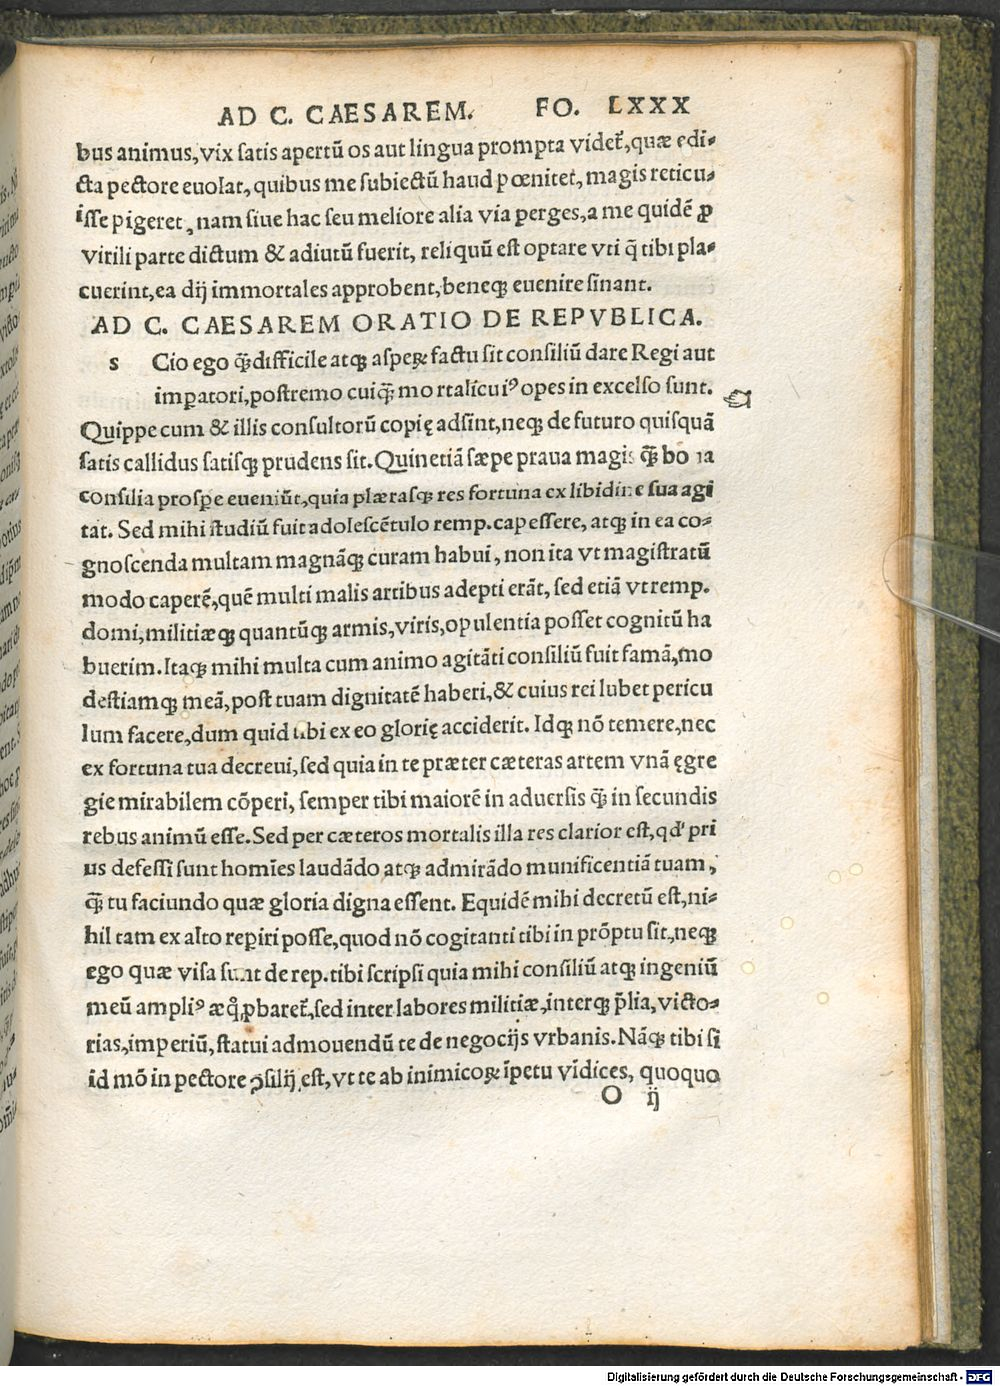 AD C. CAESAREM. FO. LXXX
bus animus, vix satis apertū os aut lingua prompta videt᷑, quæ edi-
cta pectore euolat, quibus me subiectū haud pœnitet, magis reticu-
isse pigeret, nam siue hac seu meliore alia via perges, a me quidē ꝓ
virili parte dictum & adiutū fuerit, reliquū est optare vti q̄ tibi pla-
cuerint, ea dij immortales approbent, beneqꝫ euenire sinant.
AD C. CAESAREM ORATIO DE REPVBLICA.
s Cio ego qꝫ̄ difficile atqꝫ asperꝝ factu sit consiliū dare Regi aut
imꝑatori, postremo cuiqꝫ̄ mortali cuiꝰ opes in excelso sunt.
Quippe cum & illis consultorū copię adsint, neqꝫ de futuro quisquā
satis callidus satisqꝫ prudens sit. Quinetiā sæpe praua magis qꝫ̄ bona
consilia prosꝑe eueniūt, quia plærasqꝫ res fortuna ex libidine sua agi
tat. Sed mihi studiū fuit adolescētulo remp. capessere, atqꝫ in ea co-
gnoscenda multam magnāqꝫ curam habui, non ita vt magistratū
modo caperē, quē multi malis artibus adepti erāt, sed etiā vt remp.
domi, militiæqꝫ quantūqꝫ armis, viris, opulentia posset cognitū ha
buerim. Itaqꝫ mihi multa cum animo agitāti consiliū fuit famā, mo
destiamqꝫ meā, post tuam dignitatē haberi, & cuius rei lubet pericu
lum facere, dum quid tibi ex eo glorię acciderit. Idqꝫ nō temere, nec
ex fortuna tua decreui, sed quia in te præter cæteras artem vnā ęgre
gie mirabilem cōperi, semper tibi maiorē in aduersis qꝫ̄ in secundis
rebus animū esse. Sed per cæteros mortalis illa res clarior est, qd' pri
us defessi sunt homīes laudādo atqꝫ admirādo munificentiā tuam,
qꝫ̄ tu faciundo quæ gloria digna essent. Equidē mihi decretū est, ni-
hil tam ex alto reꝑiri posse, quod nō cogitanti tibi in prōptu sit, neqꝫ
ego quæ visa sunt de rep. tibi scripsi quia mihi consiliū atqꝫ ingeniū
meū ampliꝰ æq̊ ꝓbaret᷑, sed inter labores militiæ, interqꝫ p̄lia, victo-
rias, imperiū, statui admouendū te de negocijs vrbanis. Nāqꝫ tibi si
id mō in pectore ꝯsilij est, vt te ab inimicoꝝ īpetu vīdices, quoquo
O ij
Digitalisierung gefördert durch die Deutsche Forschungsgemeinschaft - DFG